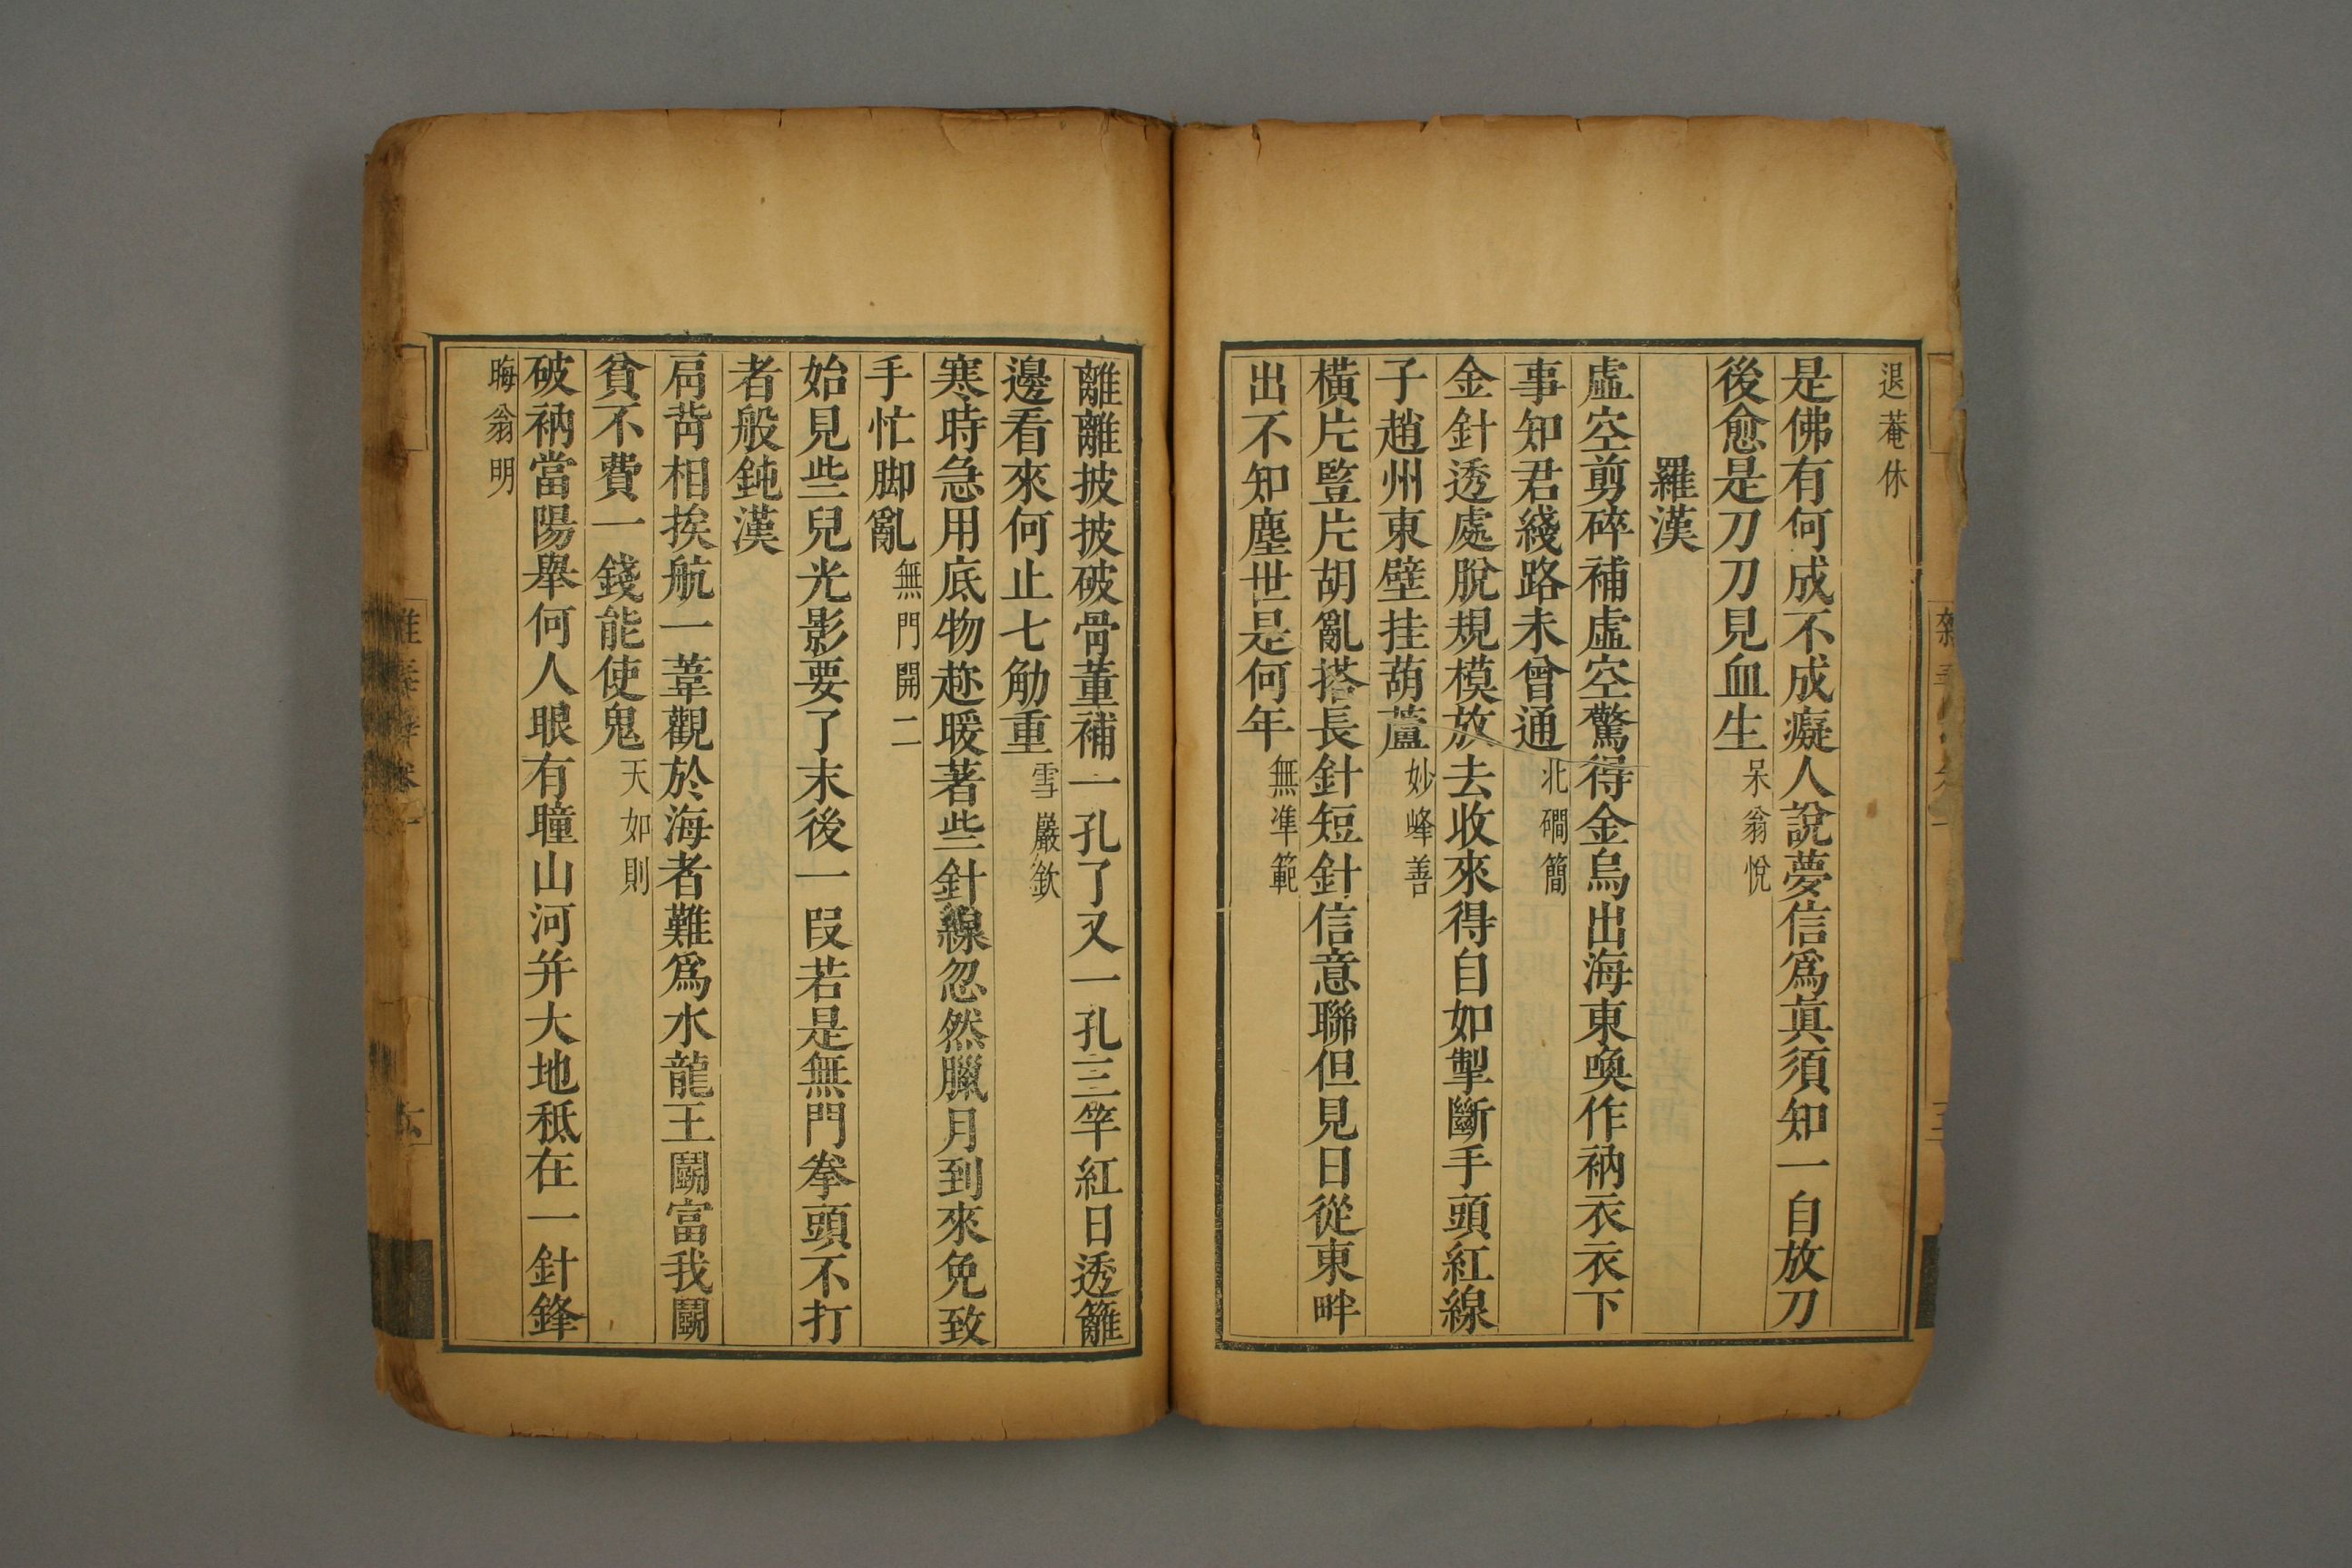 退菴休
是佛有何成不成癡人說夢信爲眞須知一自放刀
後愈是刀刀見血生呆翁悅
羅漢
虛空剪碎補虛空驚得金烏出海東喚作衲衣衣下
事知君綫路未曾通北磵簡
金針透處脫規模放去收來得自如掣斷手頭紅線
子趙州東壁挂葫蘆妙峰善
橫片豎片胡亂搭長針短針信意聯但見日從東畔
出不知塵世是何年無準範
離離披披破骨董補一孔了又一孔三竿紅日透籬
邊看來何止七觔重雪巖欽
寒時急用底物趂暖著些針線忽然臘月到來免致
手忙脚亂無門開二
始見些兒光影要了末後一段若是無門拳頭不打
者般鈍漢
肩背相挨航一葦觀於海者難爲水龍王鬬富我鬬
貧不費一錢能使鬼天如則
破衲當陽舉何人眼有瞳山河并大地秪在一針鋒
晦翁明